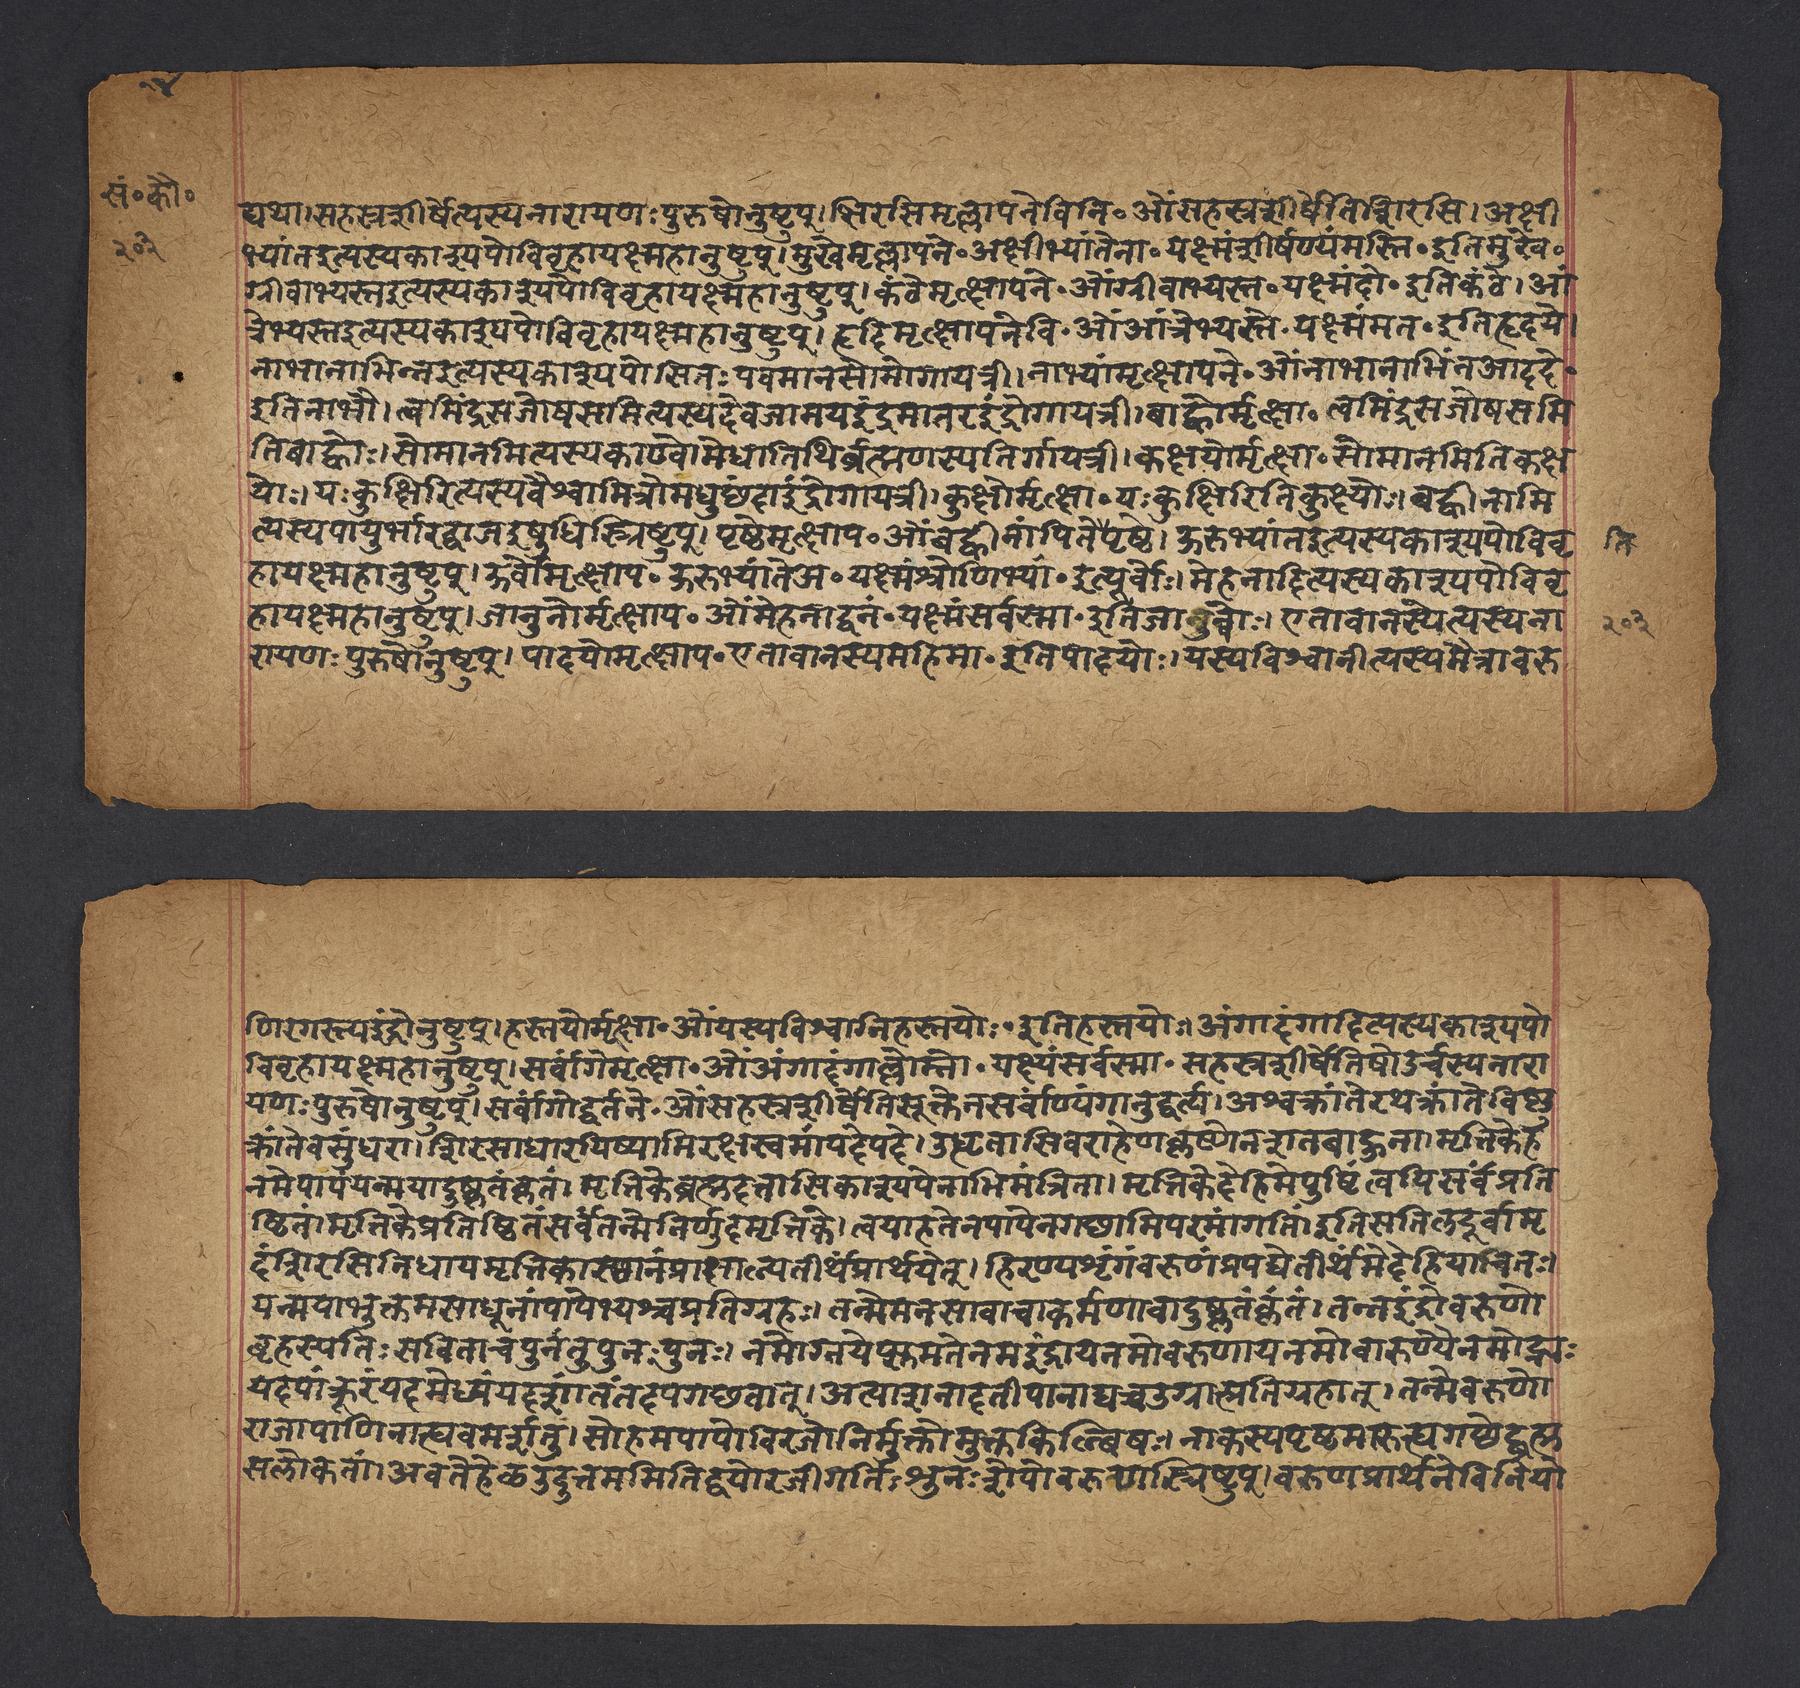 २४
सं॰कौ॰
२०३
द्यथा।सहस्रशीर्षेत्यस्यनारायणःपुरुषोनुष्टुप्।शिरसिमृल्लापनेविनि॰ओंसहस्रशीर्षेतिशिरसि।अक्षी
भ्यांतइत्यस्यकाश्यपोविवृहायक्ष्महानुष्टुप्।मुखेमृल्लापने॰अक्षीभ्यांतेना॰यक्ष्मंशीर्षण्यंमस्ति॰इतिमुखे॰
ग्रीवाभ्यस्तइत्यस्यकाश्यपोविवृहायक्ष्महानुष्टुप्।कंठेमृल्लापने॰ओंग्रीवाभ्यस्त॰यक्ष्मंदो॰इतिकंठे।आं
त्रेभ्यस्तइत्यस्यकाश्यपोविवृहायक्ष्महानुष्टुप्।हृदिमृल्लापनेवि॰ओंआंत्रेभ्यस्ते॰यक्ष्मंमत॰इतिहृदये।
नाभानाभिन्नइत्यस्यकाश्यपोसितःपवमानसोमोगायत्री।नाभ्यांमृल्लापने॰ओंनाभानाभिंनआददे॰
इतिनाभौ।त्वमिंद्रसजोषसमित्यस्यदेवजामयइंद्रमातरइंद्रोगायत्री।बाह्वोर्मृल्ला॰त्वमिंद्रसजोषसमि
तिबाह्वोः।सोमानमित्यस्यकाण्वोमेधातिथिर्ब्रह्मणस्पतिर्गायत्री।कक्षयोर्मृल्ला॰सोमानमितिकक्ष
योः।यःकुक्षिरित्यस्यवैश्वामित्रोमधुछंदाइंद्रोगायत्री।कुक्षौर्मृल्ला॰यःकुक्षिरितिकुक्ष्योः।बह्वीनामि
त्यस्यपायुर्भारद्वाजइषुधिस्त्रिष्टुप्।पृष्ठेमृल्लाप॰ओंबह्वीनांपितेपृष्ठे।ऊरुभ्यांतइत्यस्यकाश्यपोविवृ
ति
हायक्ष्महानुष्टुप्।ऊर्वोर्मृल्लाप॰ऊरुभ्यांतेअ॰यक्ष्मंश्रोणिभ्यां॰इत्यूर्वोः।मेहनादित्यस्यकाश्यपोविवृ
हायक्ष्महानुष्टुप्।जानुनोर्मृल्लाप॰ओंमेहनाद्वनं॰यक्ष्मंसर्वस्मा॰इतिजानुन्वोः।एतावानस्येत्यस्यना
२०३
रायणःपुरुषोनुष्टुप्।पादयोमृल्लाप॰एतावानस्यमहिमा॰इतिपादयोः।यस्यविश्वानीत्यस्यमैत्रावरु
णिरगस्त्यइंद्रोनुष्टुप्।हस्तयोर्मृल्ला॰ओंयस्यविश्वानिहस्तयोः॰इतिहस्तयोः।अंगादंगादित्यस्यकाश्यपो
विवृहायक्ष्महानुष्टुप्।सर्वांगेमृल्ला॰ओंअंगादंगाल्लोम्नो॰यक्ष्मंसर्वस्मा॰सहस्रशीर्षेतिषोडर्चस्यनारा
यणःपुरुषोनुष्टुप्।सर्वांगोद्वर्तने॰ओंसहस्रशीर्षेतिसूक्तेनसर्वाण्यंगानुद्वर्त्य।अश्वक्रांतेरथक्रांतेविष्णु
क्रांतेवसुंधरा।शिरसाधारयिष्यामिरक्षस्वमांपदेपदे।उद्धृतासिवराहेणकृष्णेनशतबाहुना।मृत्तिकेह
नमेपापंयन्मयादुष्कृतंकृतं।मृत्तिकेब्रह्मदत्तासिकाश्यपेनाभिमंत्रिता।मृत्तिकेदेहिमेपुष्टिंत्वयिसर्वंप्रति
ष्ठितं।मृत्तिकेप्रतिष्ठितंसर्वंतन्मेनिर्णुदमृत्तिके।त्वयाहतेनपापेनगछामिपरमांगतिं।इतिसतिलदूर्वामृ
दंशिरसिनिधायमृत्तिकास्थानंप्रक्षाल्येतीर्थंप्रार्थयेत्।हिरण्यशृंगंवरुणंप्रपद्येतीर्थंमेदेहियाचितः।
यन्मयाभुक्तमसाधूनांपापेभ्यश्चप्रतिग्रहः।तन्मेमनसावाचाकर्मणावादुष्कृतंकृतं।तन्नइंद्रोवरुणो
बृहस्पतिःसविताचपुनंतुपुनःपुनः।नमोग्नयेप्सुमतेनमइंद्रायनमोवरुणायनमोवारुण्यैनमोद्भ्यः
यदपांक्रूरंयदमेध्यंयदशांतंतदपगछतात्।अत्याशनादतीपानाद्यच्चउग्रात्प्रतिग्रहात्।तन्मेवरुणो
राजापाणिनाह्यवमर्शतु।सोहमपापोविरजोनिर्मुक्तोमुक्तकिल्बिषः।नाकस्यपृष्ठमारुह्यगछेद्ब्रह्म
सलोकतां।अवतेहेळउदुत्तममितिद्वयोरजीगर्तिःशुनःशेपोवरुणस्त्रिष्टुप्।वरुणप्रार्थनेविनियो